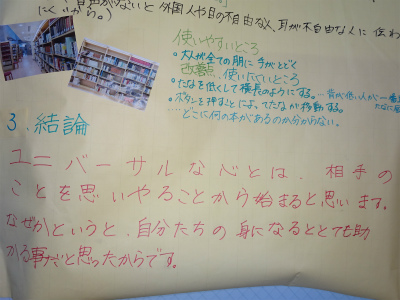 音声がないと外国人や目の不自由な人、耳が不自由な人に伝わ
にくいから。)
使いやすいところ
・大人が全ての朋に手がとどく
改善点、使いにくいところ
・たなを低くして横長のようにする。…背が低い人が一番
・ボタンを押すことによってたなが移動する。
……どこに何の本があるのか分からない。
3.結論
ユニバーサルな心とは、相手の
ことを思いやることから始まると思います。
なぜかというと、自分たちの身になるととても助
かる事だと思ったからです。